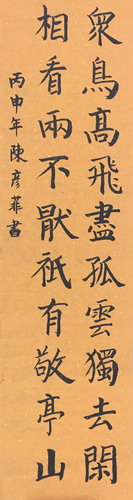 衆鳥高飛盡孤雲獨去閑
相看兩不厭祇有敬亭山
丙申年陳彦菲書